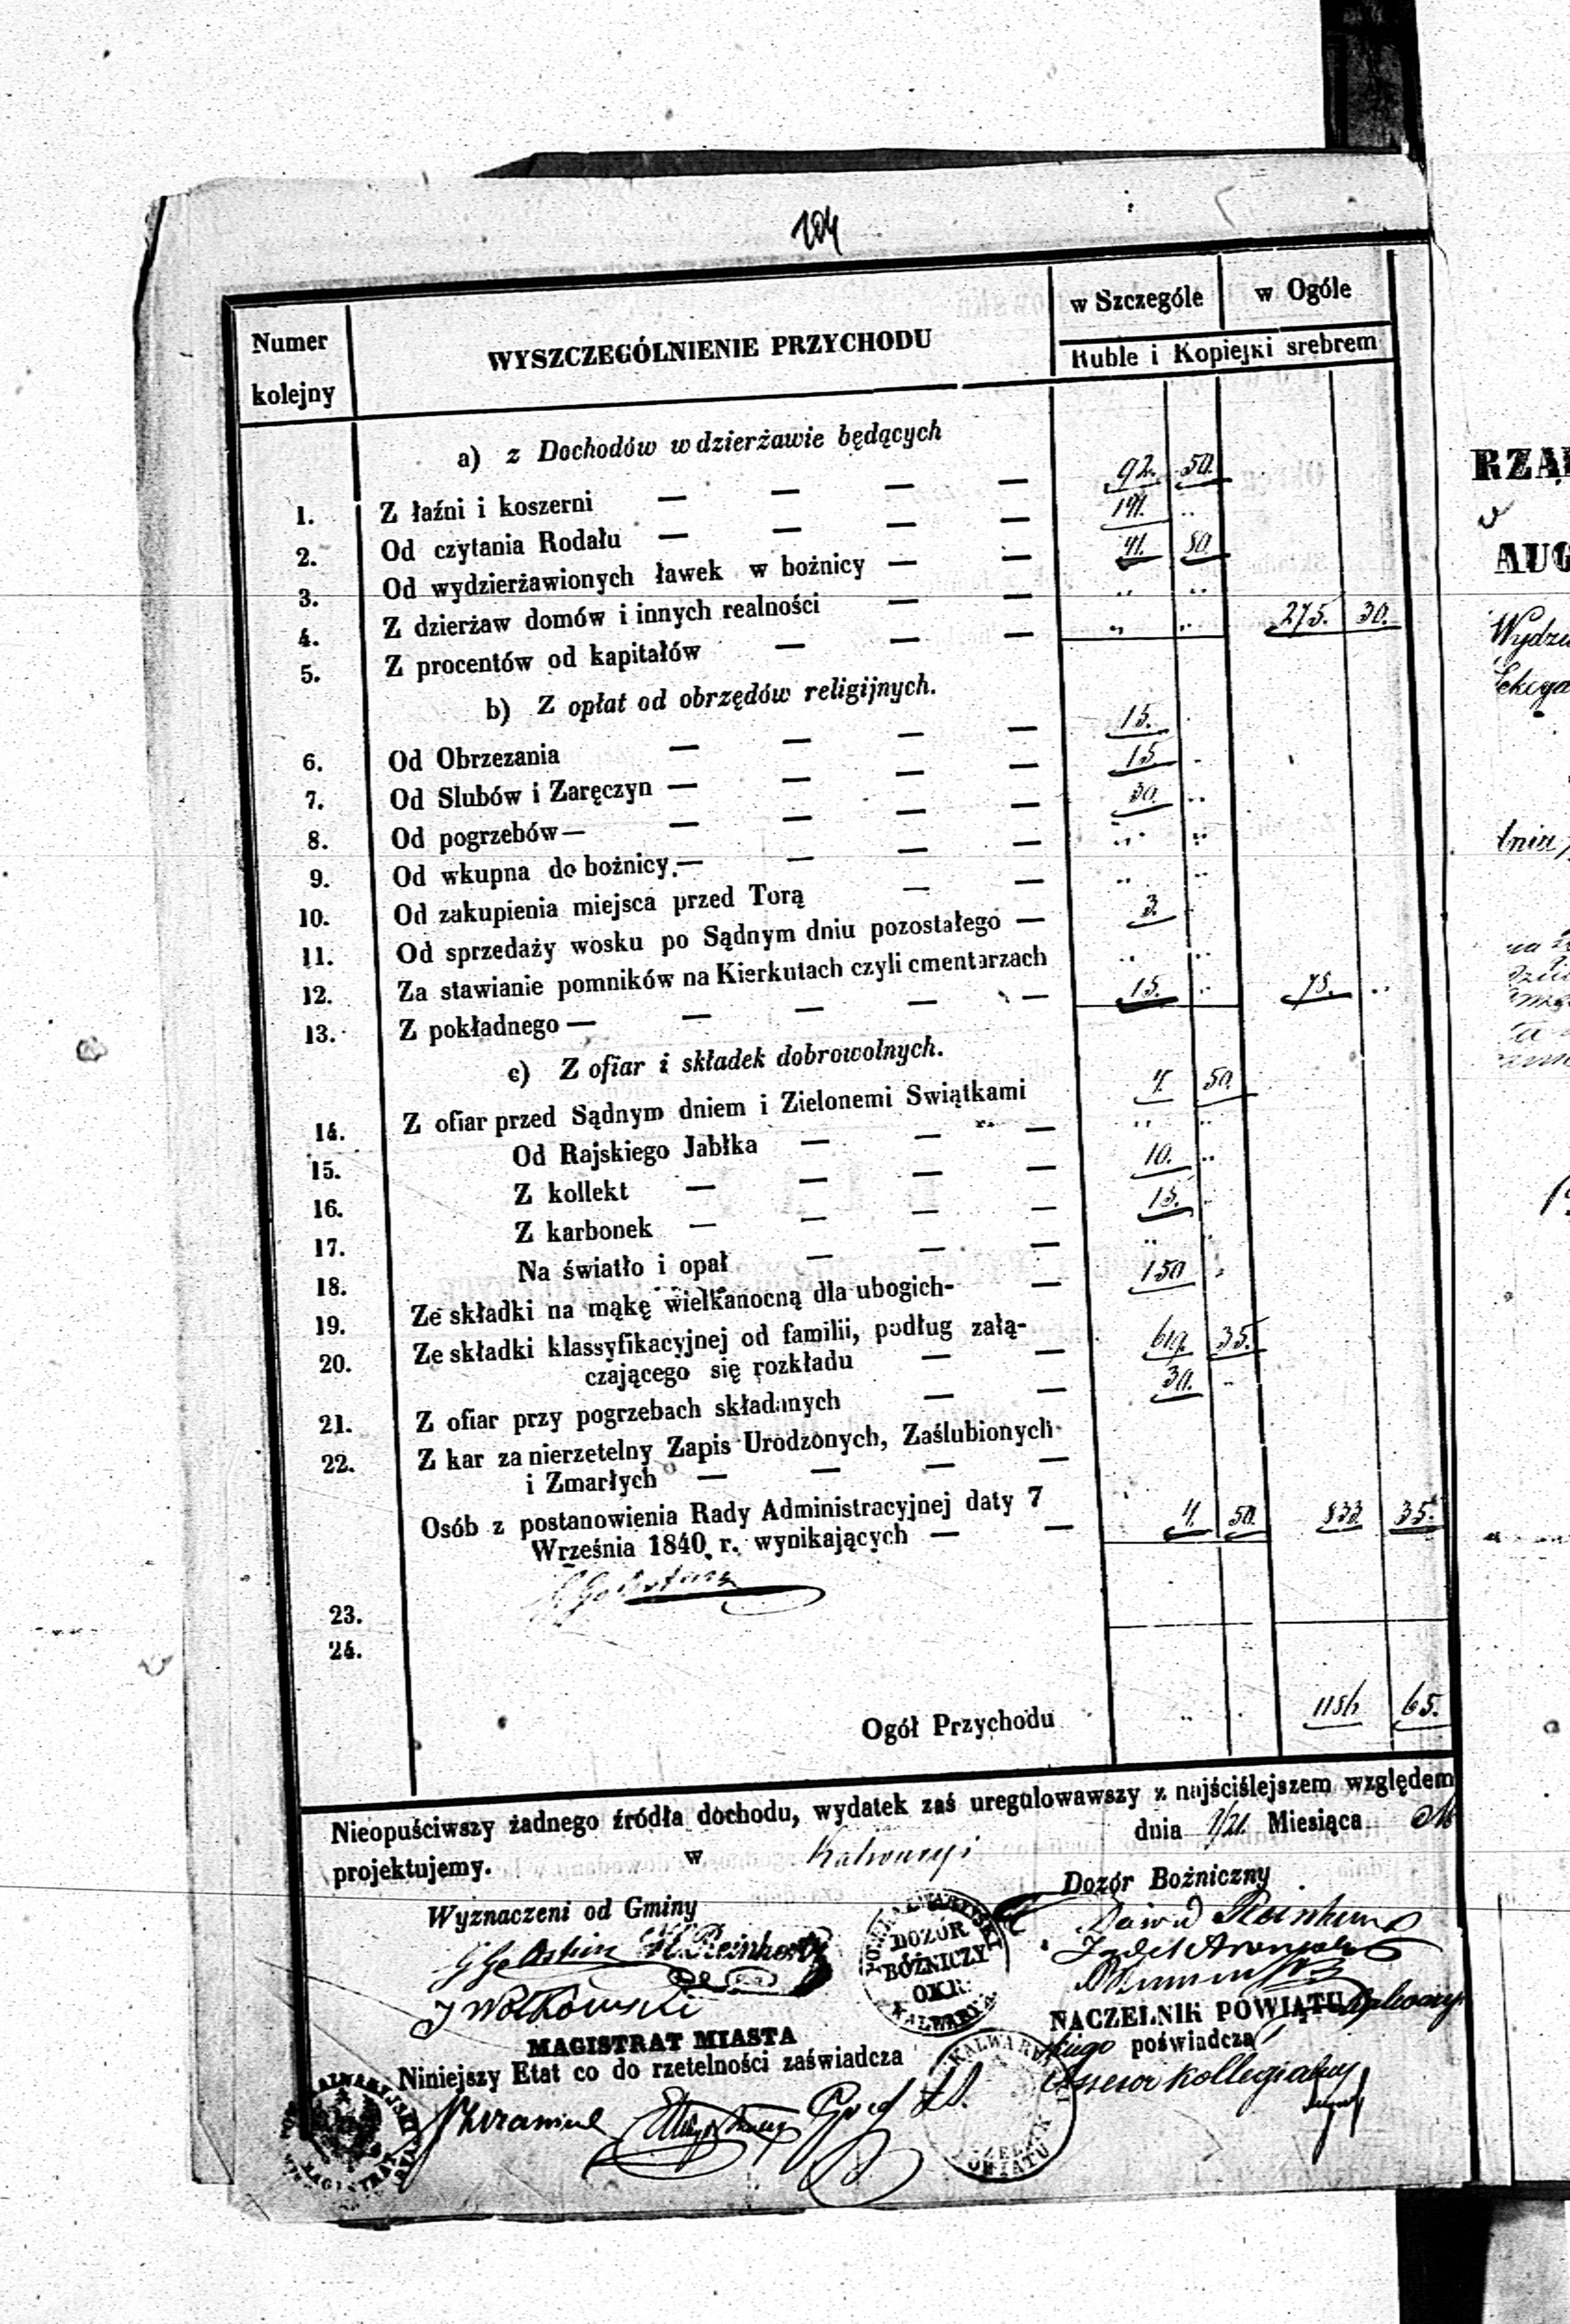 104
Numer kolejny WYSZCZEGÓLNIENIE PRZYCHODU w Szczególe w Ogóle
Ruble i Kopiejki srebrem
a) z Dochodów w dzierżawie będących
1. Z łaźni i koszerni — — — — 92. 50.
2. Od czytania Rodału — — — — 141. ..
3. Od wydzierżawionych ławek w bożnicy — — 41. 80.
4. Z dzierżaw domów i innych realności — — .. ..
5. Z procentów od kapitałów — — — .. .. 275. 30.
b) Z opłat od obrzędów religijnych.
6. Od Obrzezania — — — — 15. .
7. Od Slubów i Zaręczyn — — — — 15 .
8. Od pogrzebów — — — — 30. ..
9. Od wkupna do bożnicy. — — — — .. ..
10. Od zakupienia miejsca przed Torą — — .. ..
11. Od sprzedaży wosku po Sądnym dniu pozostałego — 3.
12. Za stawianie pomników na Kierkutach czyli cmentarzach .. ..
13. Z pokładnego — — — — — 15. .. 75. ..
c) Z ofiar i składek dobrowolnych.
14. Z ofiar przed Sądnym dniem i Zielonemi Swiątkami 4. 50.
15. Od Rajskiego Jabłka — — — .. ..
16. Z kollekt — — — — 10. ..
17. Z karbonek — — — — 15. .
18. Na światło i opał — — — .. .
19. Ze składki na mąkę wielkanocną dla ubogich- — 150 .
20. Ze składki klassyfikacyjnej od familii, podług załą-
czającego się rozkładu — — 619. 35.
21. Z ofiar przy pogrzebach składanych — — 30. ..
22. Z kar za nierzetelny Zapis Urodzonych, Zaślubionych
i Zmarłych — — — —
Osób z postanowienia Rady Administracyjnej daty 7
Września 1840. r. wynikających — — 4. 50. 833 35.
23.
24.
Ogół Przychodu .. . 1183 65.
Nieopuściwszy żadnego źródła dochodu, wydatek zaś uregulowawszy z najściślejszem względem
projektujemy. w Kalwaryi dnia 9/21 Miesiąca
Wyznaczeni od Gminy Dozór Bożniczny
J Wolkowski
DOZÓR
BÓŻNICZY
OKR.
KALWARYA
MAGISTRAT MIASTA
Niniejszy Etat co do rzetelności zaświadcza
NACZELNIK POWIATU
poświadcza
Assesor Kollegialny
RZĄ
AUG